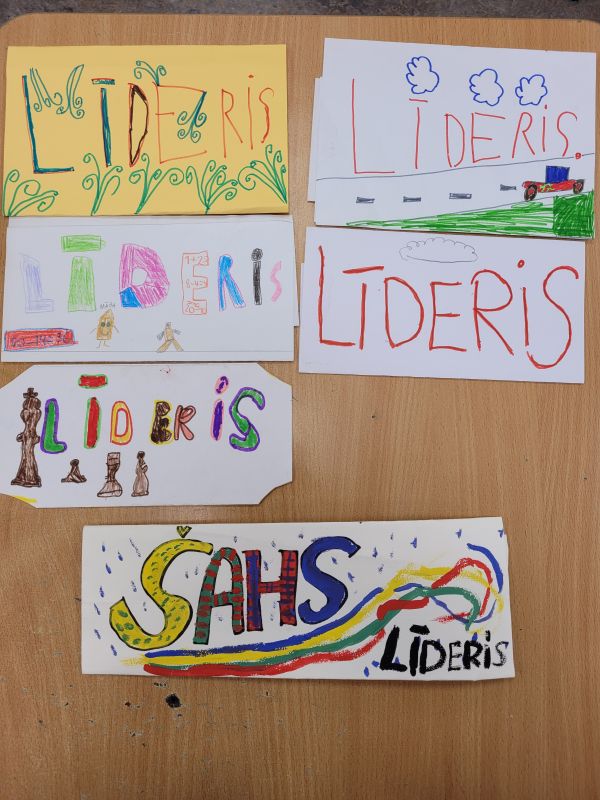 LĪDERIS
LĪDERIS.
LĪDERIS
LĪDERIS
LĪDERIS
ŠAHS
LĪDERIS